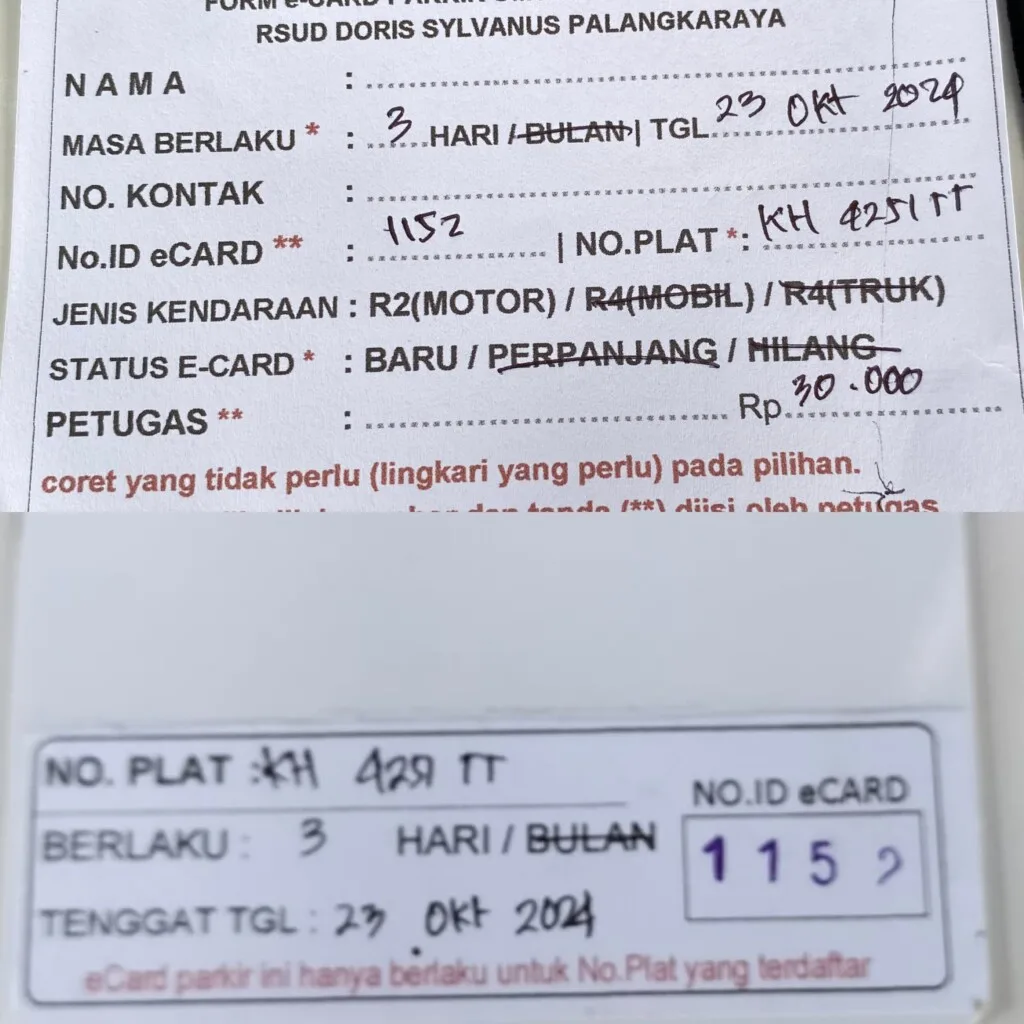 FORM e-CARD PARKIR
RSUD DORIS SYLVANUS PALANGKARAYA
N A M A :
MASA BERLAKU * : 3 HARI / BULAN | TGL 23 Okt 2024
NO. KONTAK :
No.ID eCARD ** : 1152 | NO.PLAT *: KH 4251 TT
JENIS KENDARAAN : R2(MOTOR) / R4(MOBIL) / R4(TRUK)
STATUS E-CARD * : BARU / PERPANJANG / HILANG
PETUGAS ** : Rp 30.000
coret yang tidak perlu (lingkari yang perlu) pada pilihan.
dan tanda (**) diisi oleh petugas
NO. PLAT : KH 4251 TT
NO.ID eCARD
BERLAKU : 3 HARI / BULAN
1 1 5 2
TENGGAT TGL : 23 Okt 2024
eCard parkir ini hanya berlaku untuk No.Plat yang terdaftar